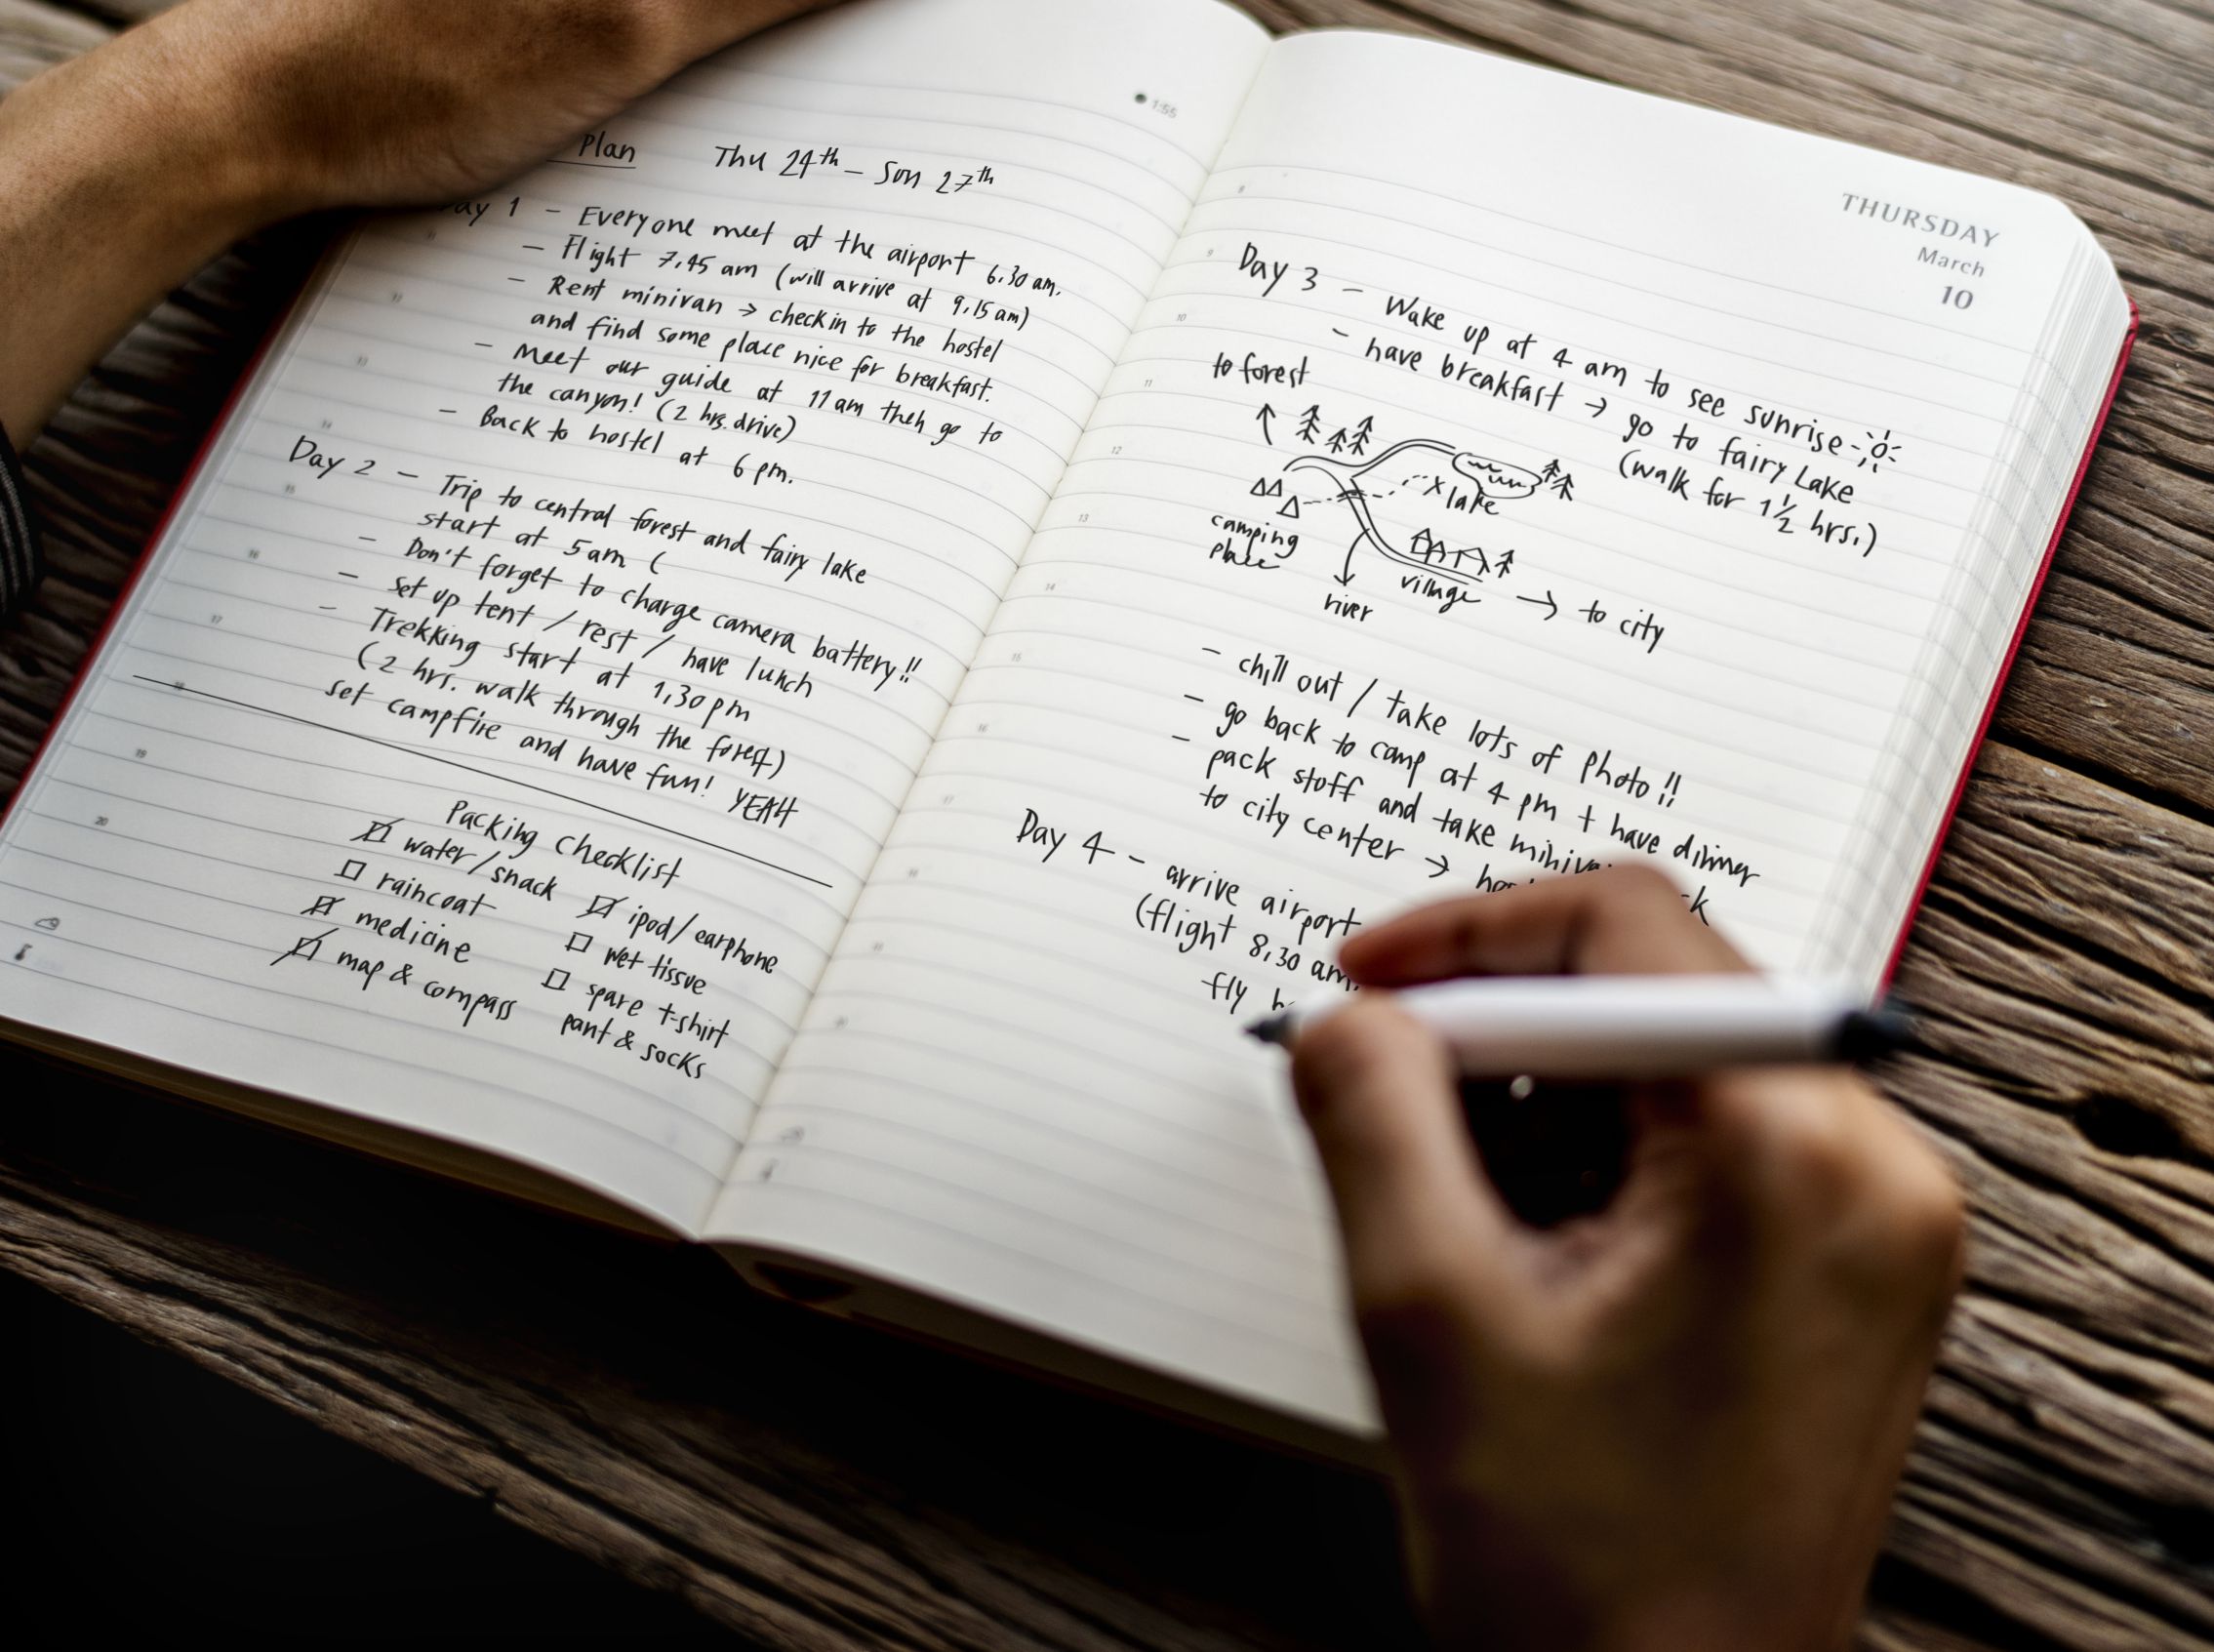 1:55
Plan Thu 24th – Sun 27th
ay 1 – Everyone meet at the airport 6.30 am.
– Flight 7.45 am (will arrive at 9.15 am)
– Rent minivan → check in to the hostel
and find some place nice for breakfast.
– Meet our guide at 11 am then go to
the canyon! (2 hrs. drive)
– Back to hostel at 6 pm.
Day 2 – Trip to central forest and fairy lake
start at 5 am (
– Don't forget to charge camera battery!!
– set up tent / rest / have lunch
– Trekking start at 1.30 pm
(2 hrs. walk through the forest)
set campfire and have fun! YEAH
Packing Checklist
water/snack
raincoat
medicine
map & compass
ipod/earphone
wet tissue
spare t-shirt
pant & socks
THURSDAY
March
10
Day 3 – Wake up at 4 am to see sunrise
– have breakfast → go to fairy Lake
(walk for 1 1/2 hrs.)
to forest
x lake
camping
place
village
river
→ to city
– chill out / take lots of photo!!
– go back to camp at 4 pm + have dinner
– pack stuff and take
to city center →
Day 4 – arrive airport
(flight 8.30 am.
fly
8
9
10
11
12
13
14
15
16
17